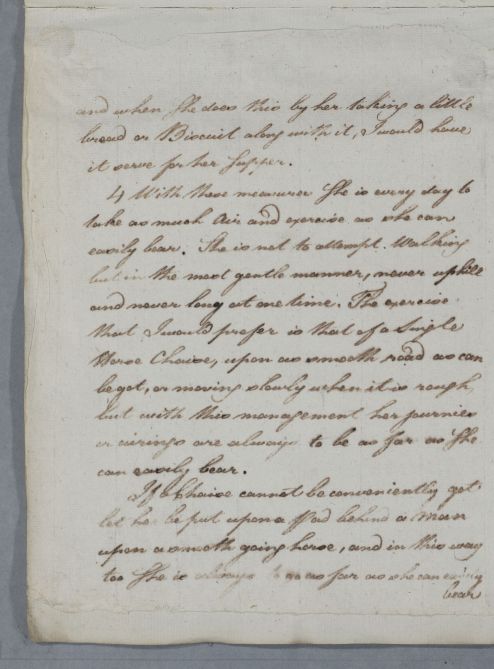 and when She does this by her taking a little
bread or Biscuit along with it, I would have
it serve for her Supper.
4 With these measures She is every day to
take as much Air and exercise as she can
easily bear. She is not to attempt Walking
but in the most gentle manner, never uphill
and never long at one time. The exercise
that I would prefer is that of a Single
Horse Chaise, upon as smooth road as can
be got, or moving slowly when it is rough,
but with this management her journies
or airings are always to be as far as She
can easily bear.
If a Chaise cannot be conveniently got
let her be put upon a Pad behind a Man
upon a smooth going horse, and in this way
too She is always to go as far as she can easily
bear